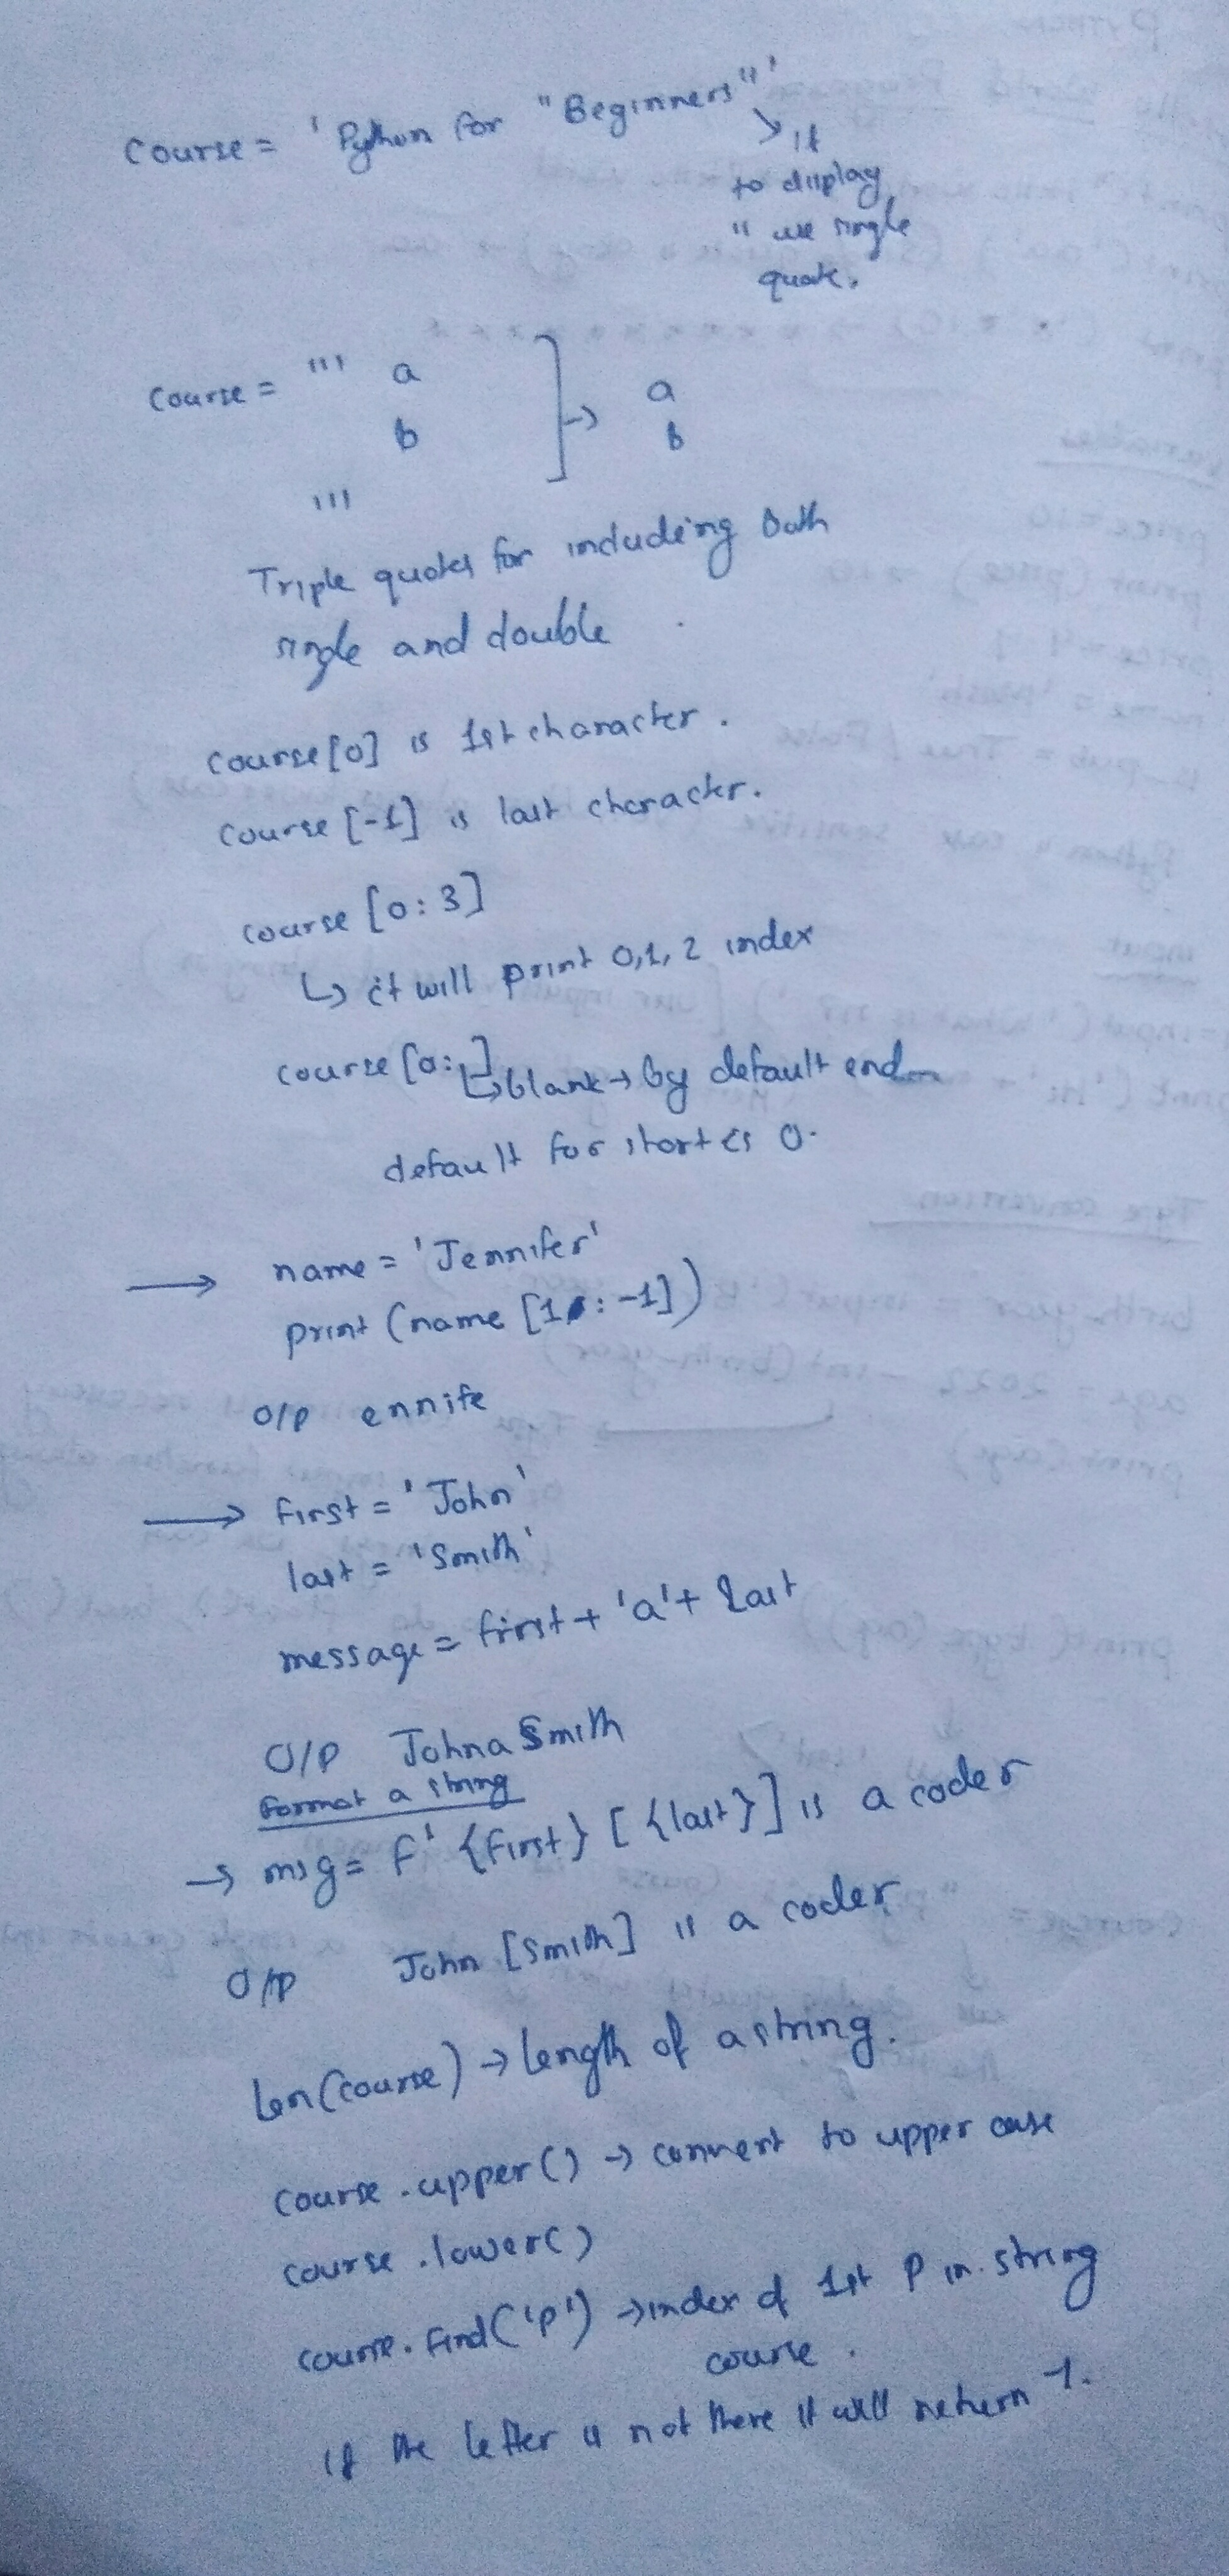 course = 'Python for "Beginners"'
→ if
to display
" use single
quote.
course = ''' a
b
'''
] → a
b
Triple quotes for including both
single and double
course[0] is 1st character.
course [-1] is last character.
course [0:3]
↳ it will print 0,1,2 index
course [0: ] ↳ blank → by default end
default for start is 0.
→ name = 'Jennifer'
print (name [1 : -1])
O/P ennife
→ first = 'John'
last = 'Smith'
message = first + 'a' + last
O/P JohnaSmith
Format a string
→ msg = F' {first} [ {last}] is a coder
O/P John [Smith] is a coder
len(course) → length of a string.
course.upper() → convert to upper case
course.lower()
course.find('p') → index of 1st P in string
course.
if the letter is not there it will return -1.